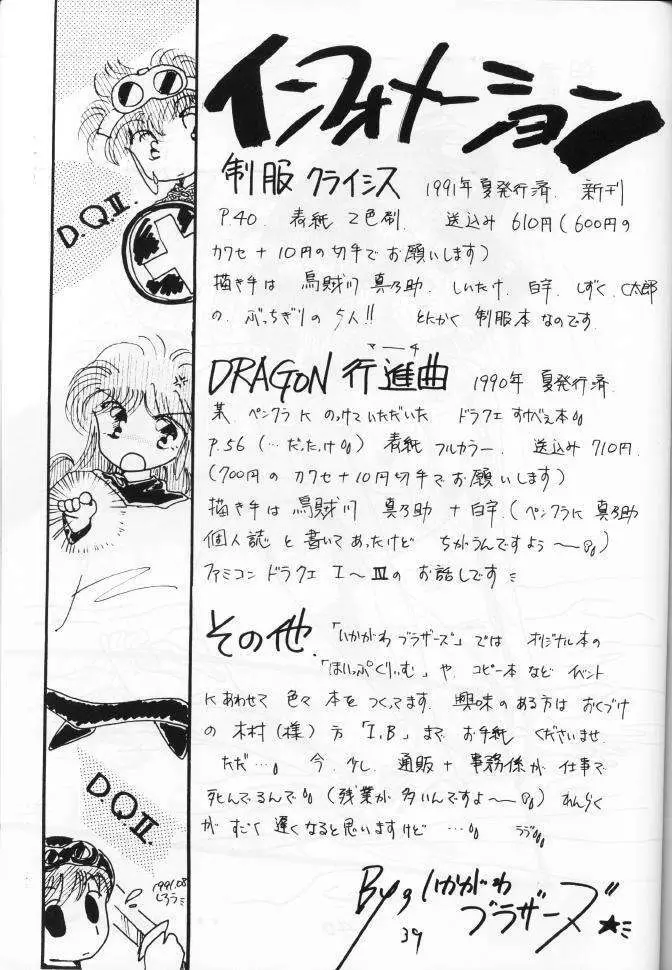 インフォメーション
制服クライシス 1991年夏発行済. 新刊
P.40. 表紙 2色刷. 送込み 610円(600円の
カワセ+10円の切手でお願いします)
描き手は 烏賊川 真乃助. しいたけ. 白宇. しずく. C太郎
の. ぶっちぎりの5人!! とにかく 制服本なのです.
マーチ
DRAGON 行進曲 1990年 夏発行済.
某. ペンクラに のっけていただいた ドラクエ すけべえ本
P.56 (…だったけ) 表紙 フルカラー. 送込み 710円.
(700円の カワセ+10円切手でお願いします)
描き手は 烏賊川 真乃助 + 白宇. (ペンクラに 真乃助
個人誌と書いてあったけど ちがうんですよう〜)
ファミコン ドラクエ I〜IIIの お話しです
その他. 「いかがわブラザーズ」では オリジナル本の
「ほいっぷくりぃむ」や. コピー本など イベント
にあわせて 色々 本をつくってます. 興味のある方は おくづけ
の 木村(様)方「I,B」まで お手紙 くださいませ.
ただ…。 今. 少し. 通販+事務係が 仕事で
死んでるんで (残業が多いんですよ〜) れんらく
が すごく 遅くなると思いますけど …。
By いかがわ
ブラザーズ
39
D.Q.II.
D.Q.II.
1991.08
しろう